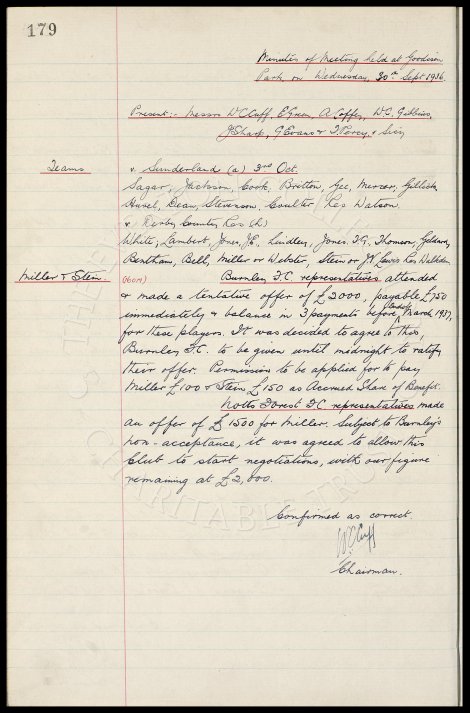 179
Minutes of Meeting held at Goodison
Park on Wednesday, 30th Sept 1936.
Present:- Messrs W.C.Cuff, E.Green, A.Coffey, W.C. Gibbins,
J.Sharp, G.Evans & T.Percy, & Secy.
Teams
v. Sunderland (a) 3rd Oct.
Sagar, Jackson, Cook, Britton, Gee, Mercer, Gillick
Hurel, Dean, Stevenson, Coulter. Res Watson
v Derby County Res (h)
White, Lambert, Jones J.E, Lindley, Jones. T.G, Thomson, Geldard,
Bentham, Bell, Miller or Webster, Stein or J.K. Lewis Res Webster
Miller & Stein.
Burnley F.C. representatives attended
& made a tentative offer of £2000, payable £750
immediately & balance in 3 payments before March 1937,
for these players. It was decided to agree to this,
Burnley F.C. to be given until midnight to ratify
their offer. Permission to be applied for to pay
Miller £100 & Stein £150 as Accrued Share of Benefit.
Notts Forest F.C. representatives made
an offer of £1500 for Miller. Subject to Burnley's
non-acceptance, it was agreed to allow this
Club to start negotiations, with our figure
remaining at £2,000.
Confirmed as correct.
W.C.Cuff
Chairman.